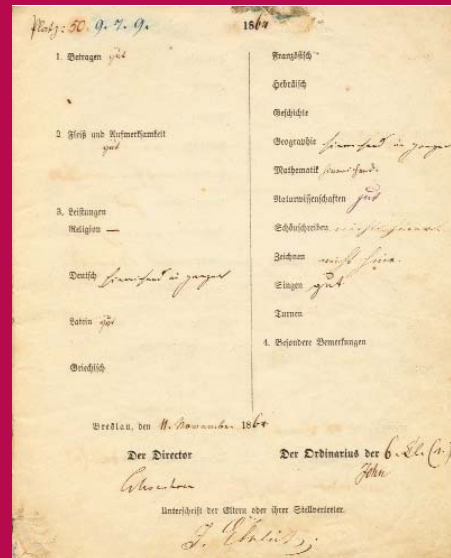 Platz: 50. 9. 7. 9.
1864
1. Betragen gut
2. Fleiß und Aufmerksamkeit
gut
3. Leistungen
Religion —
Deutsch hinreichend im ganzen
Latein gut
Griechisch
Französisch
Hebräisch
Geschichte
Geographie hinreichend im ganzen
Mathematik hinreichend.
Naturwissenschaften gut
Schönschreiben
Zeichnen nicht
Singen gut.
Turnen
4. Besondere Bemerkungen
Breslau, den 11. November 1864
Der Director
Der Ordinarius der 6. Kl. (2.)
John
Unterschrift der Eltern oder ihrer Stellvertreter.
J. Ehrlich.